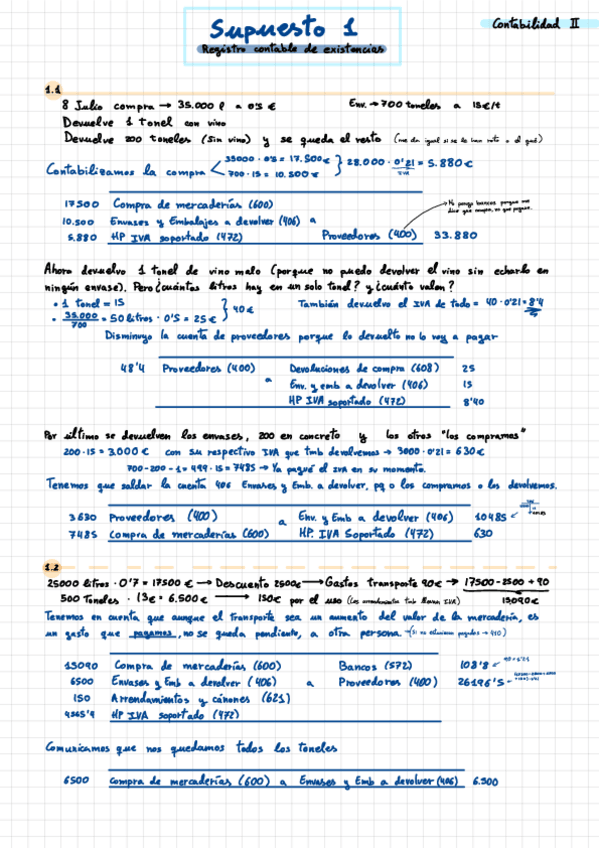 Supuesto 1
Contabilidad II
Registro contable de existencias
1.1
8 Julio compra → 35.000 l a 0'5 € Env. → 700 toneles a 15€/t
Devuelve 1 tonel con vino
Devuelve 200 toneles (sin vino) y se queda el resto (me da igual si se le han roto o el qué)
Contabilizamos la compra 35000 · 0'5 = 17.500€ 28.000 · 0'21 = 5.880€
700 · 15 = 10.500€ IVA
17500 Compra de mercaderías (600)
10.500 Envases y Embalajes a devolver (406) a
5.880 HP IVA soportado (472) Proveedores (400) 33.880
No pongo bancos porque me
dice que compra, no que pague.
Ahora devuelvo 1 tonel de vino malo (porque no puedo devolver el vino sin echarlo en
ningún envase). Pero ¿cuántos litros hay en un solo tonel? y ¿cuánto valen?
• 1 tonel = 15 40€ También devuelvo el IVA de todo = 40 · 0'21 = 8'4
• 35.000/700 = 50 litros · 0'5 = 25€
Disminuyo la cuenta de proveedores porque lo devuelto no lo voy a pagar
48'4 Proveedores (400) a Devoluciones de compra (608) 25
Env. y emb a devolver (406) 15
HP IVA soportado (472) 8'40
Por último se devuelven los envases, 200 en concreto y los otros "los compramos"
200 · 15 = 3000€ con su respectivo IVA que tmb devolvemos → 3000 · 0'21 = 630€
700 - 200 - 1 = 499 · 15 = 7485 → Ya pagué el IVA en su momento.
Tenemos que saldar la cuenta 406 Envases y Emb. a devolver, pq o los compramos o los devolvemos.
3630 Proveedores (400) a Env. y Emb a devolver (406) 10485
7485 Compra de mercaderías (600) HP. IVA Soportado (472) 630
1.2
25000 litros · 0'7 = 17500 € → Descuento 2500€ → Gastos transporte 90€ → 17500 - 2500 + 90
500 Toneles · 13€ = 6.500€ → 150€ por el uso (Los arrendamientos tmb llevan IVA) 15090€
Tenemos en cuenta que aunque el transporte sea un aumento del valor de la mercadería, es
un gasto que pagamos, no se queda pendiente, a otra persona
15090 Compra de mercaderías (600) Bancos (572) 108'8
6500 Envases y Emb a devolver (406) a Proveedores (400) 26196'5
150 Arrendamientos y cánones (621)
4565'4 HP IVA soportado (472)
Comunicamos que nos quedamos todos los toneles
6500 Compra de mercaderías (600) a Envases y Emb a devolver (406) 6.500